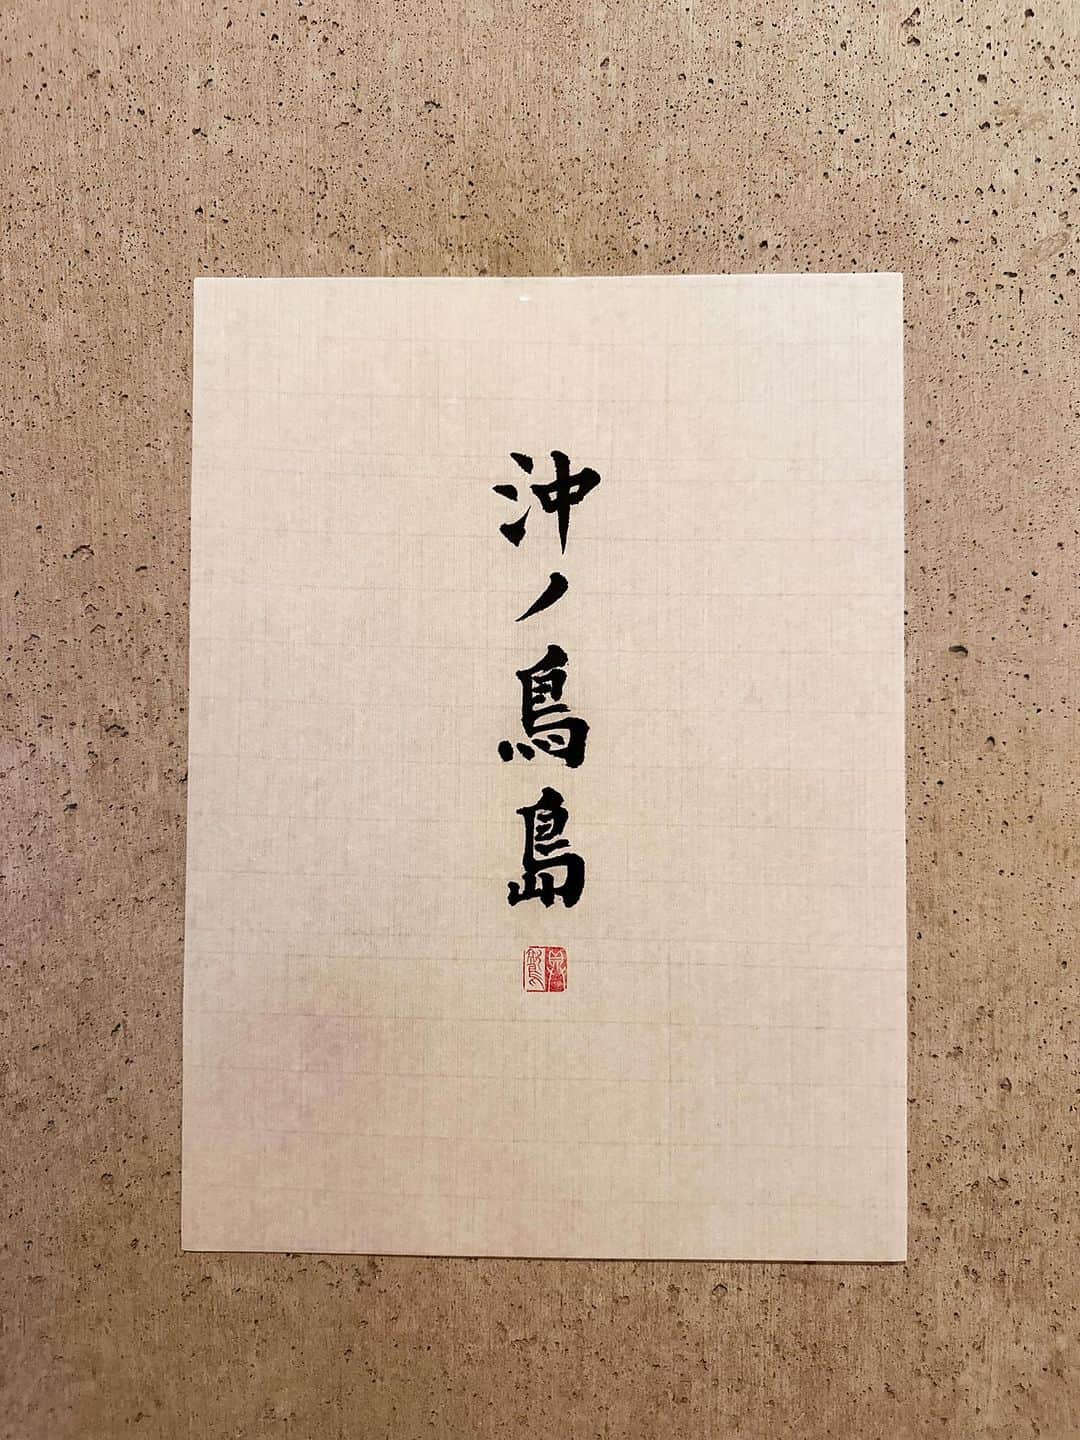 沖ノ鳥島